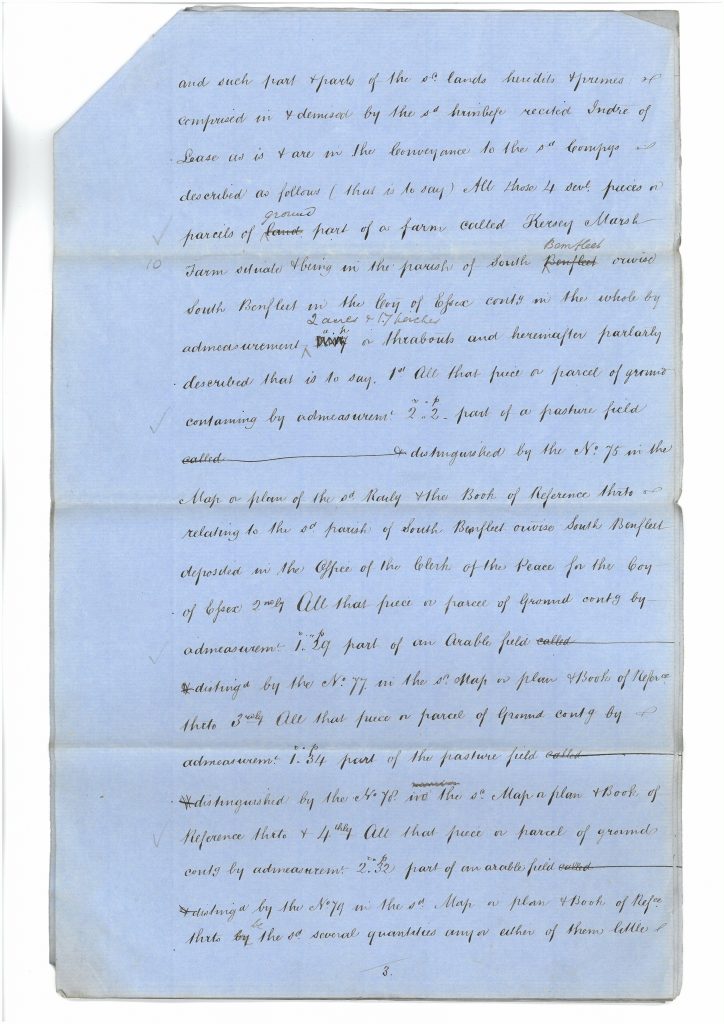 and such part & parts of the sd. lands heredits & premes
comprised in & demised by the sd hrinbefe recited Indre of
Lease as is & are in the Conveyance to the sd Compys
described as follows (that is to say) All those 4 sevl. pieces or
ground
parcels of land part of a farm called Kersey Marsh
Bemfleet
10 Farm situate & being in the parish of South Benfleet orwise
South Benfleet in the Coy of Essex contg in the whole by
2 acres & 17 perches
admeasurement or thrabouts and hereinafter parlarly
described that is to say. 1st All that piece or parcel of ground
r p
containing by admeasuremt 2..2 part of a pasture field
called & distinguished by the No. 75 in the
Map or plan of the sd Raily & the Book of Reference thrto
relating to the sd parish of South Benfleet orwise South Benfleet
deposited in the Office of the Clerk of the Peace for the Coy
of Essex 2ndly All that piece or parcel of Ground contg by
r p
admeasuremt. 1.29 part of an Arable field called
& distingd by the No. 77 in the sd Map or plan & Book of Refce
thrto 3rdly All that piece or parcel of Ground contg by
r p
admeasuremt. 1.34 part of the pasture field called
& distinguished by the No 78 in the sd Map or plan & Book of
Reference thrto & 4thly All that piece or parcel of ground
r p
contg by admeasuremt. 2.32 part of an arable field called
& distingd by the No 79 in the sd Map or plan & Book of Refce
be
thrto by the sd several quantities any or either of them little
3.